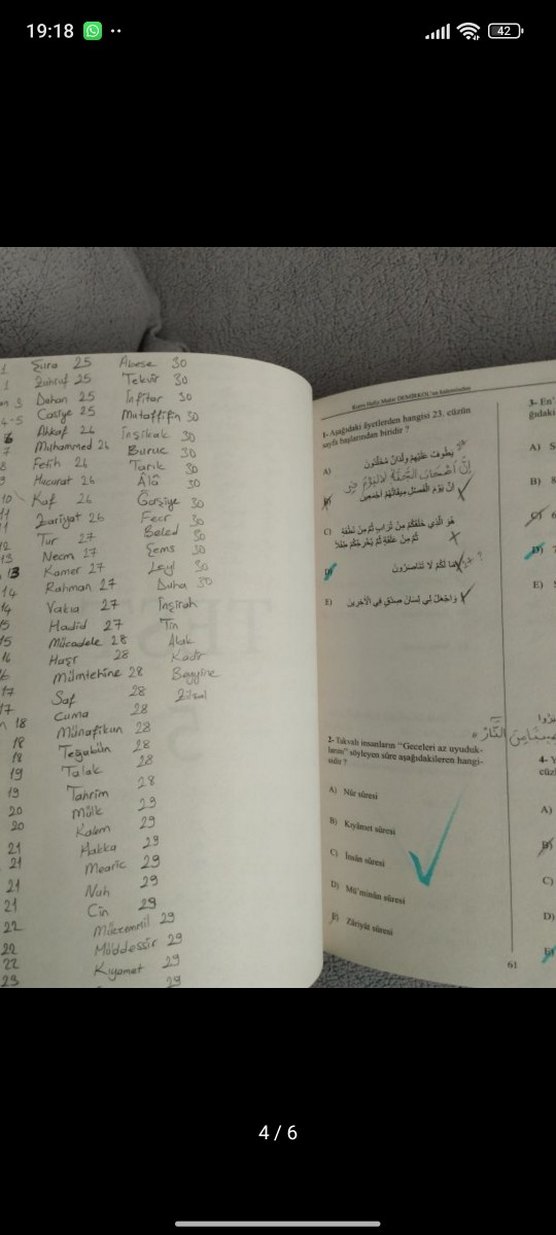 19:18
42
Şura 25
Zuhruf 25
Dahan 25
Casiye 25
Ahkaf 26
Muhammed 26
Fetih 26
Hucurat 26
Kaf 26
Zariyat 26
Tur 27
Necm 27
Kamer 27
Rahman 27
Vakıa 27
Hadid 27
Mücadele 28
Haşr 28
Mümtehine 28
Saf 28
Cuma 28
Münafikun 28
Teğabün 28
Talak 28
Tahrim 28
Mülk 29
Kalem 29
Hakka 29
Mearic 29
Nuh 29
Cin 29
Müzemmil 29
Müddessir 29
Kıyamet 29
29
Abese 30
Tekvir 30
İnfitar 30
Mutaffifin 30
İnşikak 30
Buruc 30
Tarık 30
Âlâ 30
Ğaşiye 30
Fecr 30
Beled 30
Şems 30
Leyl 30
Duha 30
İnşirah
Tin
Alak
Kadir
Beyyine
Zilzal
1- Aşağıdaki âyetlerden hangisi 23. cüzün
sayfa başlarından biridir ?
A) يَطُوفُ عَلَيْهِمْ وِلْدَانٌ مُخَلَّدُونَ
B) اِنَّ يَوْمَ الْفَصْلِ مِيقَاتُهُمْ اَجْمَعِينَ
C) هُوَ الَّذِي خَلَقَكُمْ مِنْ تُرَابٍ ثُمَّ مِنْ نُطْفَةٍ
ثُمَّ مِنْ عَلَقَةٍ ثُمَّ يُخْرِجُكُمْ طِفْلًا
D) مَا لَكُمْ لَا تَنَاصَرُونَ
E) وَاجْعَلْ لِي لِسَانَ صِدْقٍ فِي الْآخِرِينَ
2- Takvalı insanların "Geceleri az uyuduk-
larını" söyleyen sûre aşağıdakileren hangi-
sidir ?
A) Nûr sûresi
B) Kıyâmet sûresi
C) İnsân sûresi
D) Mü'minûn sûresi
E) Zâriyât sûresi
61
3- En'
ğıdaki
A) S
B) 8
C) 6
D) 7
E)
4- Y
cüz
A)
B)
C)
D)
E)
4 / 6